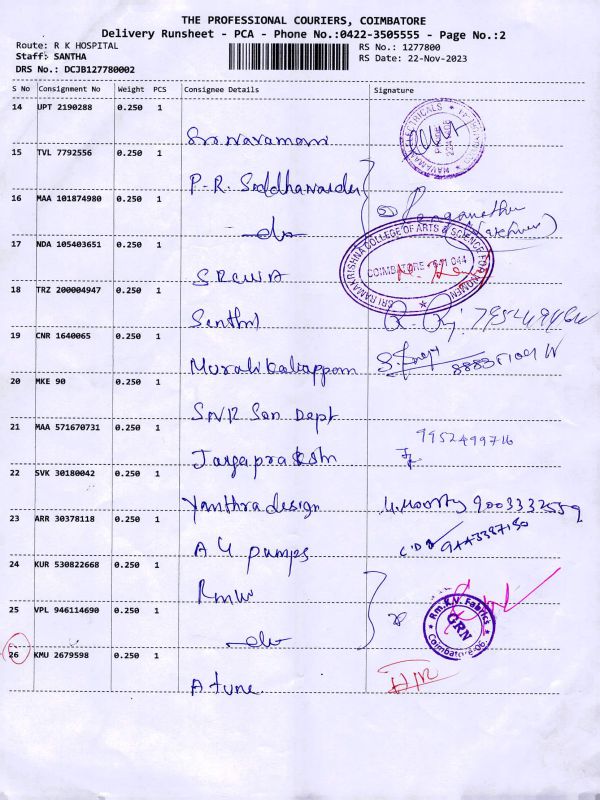 THE PROFESSIONAL COURIERS, COIMBATORE
Delivery Runsheet - PCA - Phone No.:0422-3505555 - Page No.:2
Route: R K HOSPITAL
RS No.: 1277800
Staff: SANTHA
RS Date: 22-Nov-2023
DRS No.: DCJB127780002
S No Consignment No Weight PCS Consignee Details Signature
14 UPT 2190288 0.250 1
15 TVL 7792556 0.250 1
P-R. Siddhanaidu
16 MAA 101874980 0.250 1
do
17 NDA 105403651 0.250 1
SRI RAMAKRISHNA COLLEGE OF ARTS & SCIENCE FOR WOMEN
COIMBATORE - 641 044
SRCWA
18 TRZ 200004947 0.250 1
Senthil
19 CNR 1640065 0.250 1
Muralikaliappan
20 MKE 90 0.250 1
SNR Son Dept
21 MAA 571670731 0.250 1
9952499716
Jayaprakash
22 SVK 30180042 0.250 1
Yanthra design U.Moorty 9003332559
23 ARR 30378118 0.250 1
A4 pumps
24 KUR 530822668 0.250 1
Rmkv
25 VPL 946114690 0.250 1
Rm.K.V. Fabrics
GRN
Coimbatore-06.
do
26 KMU 2679598 0.250 1
A tune